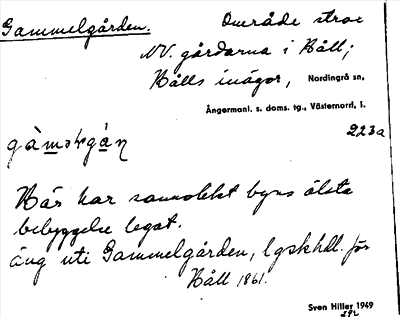 Gammelgården. Område strax
NV. gårdarna i Håll;
Hålls inägor, Nordingrå sn,
Ångermanl. s. doms. tg., Västernorrl. l.
223a
Här har sannolikt byns älsta
bebyggelse legat.
äng uti Gammelgården, lgskhdl. för
Håll 1861.
Sven Hiller 1949